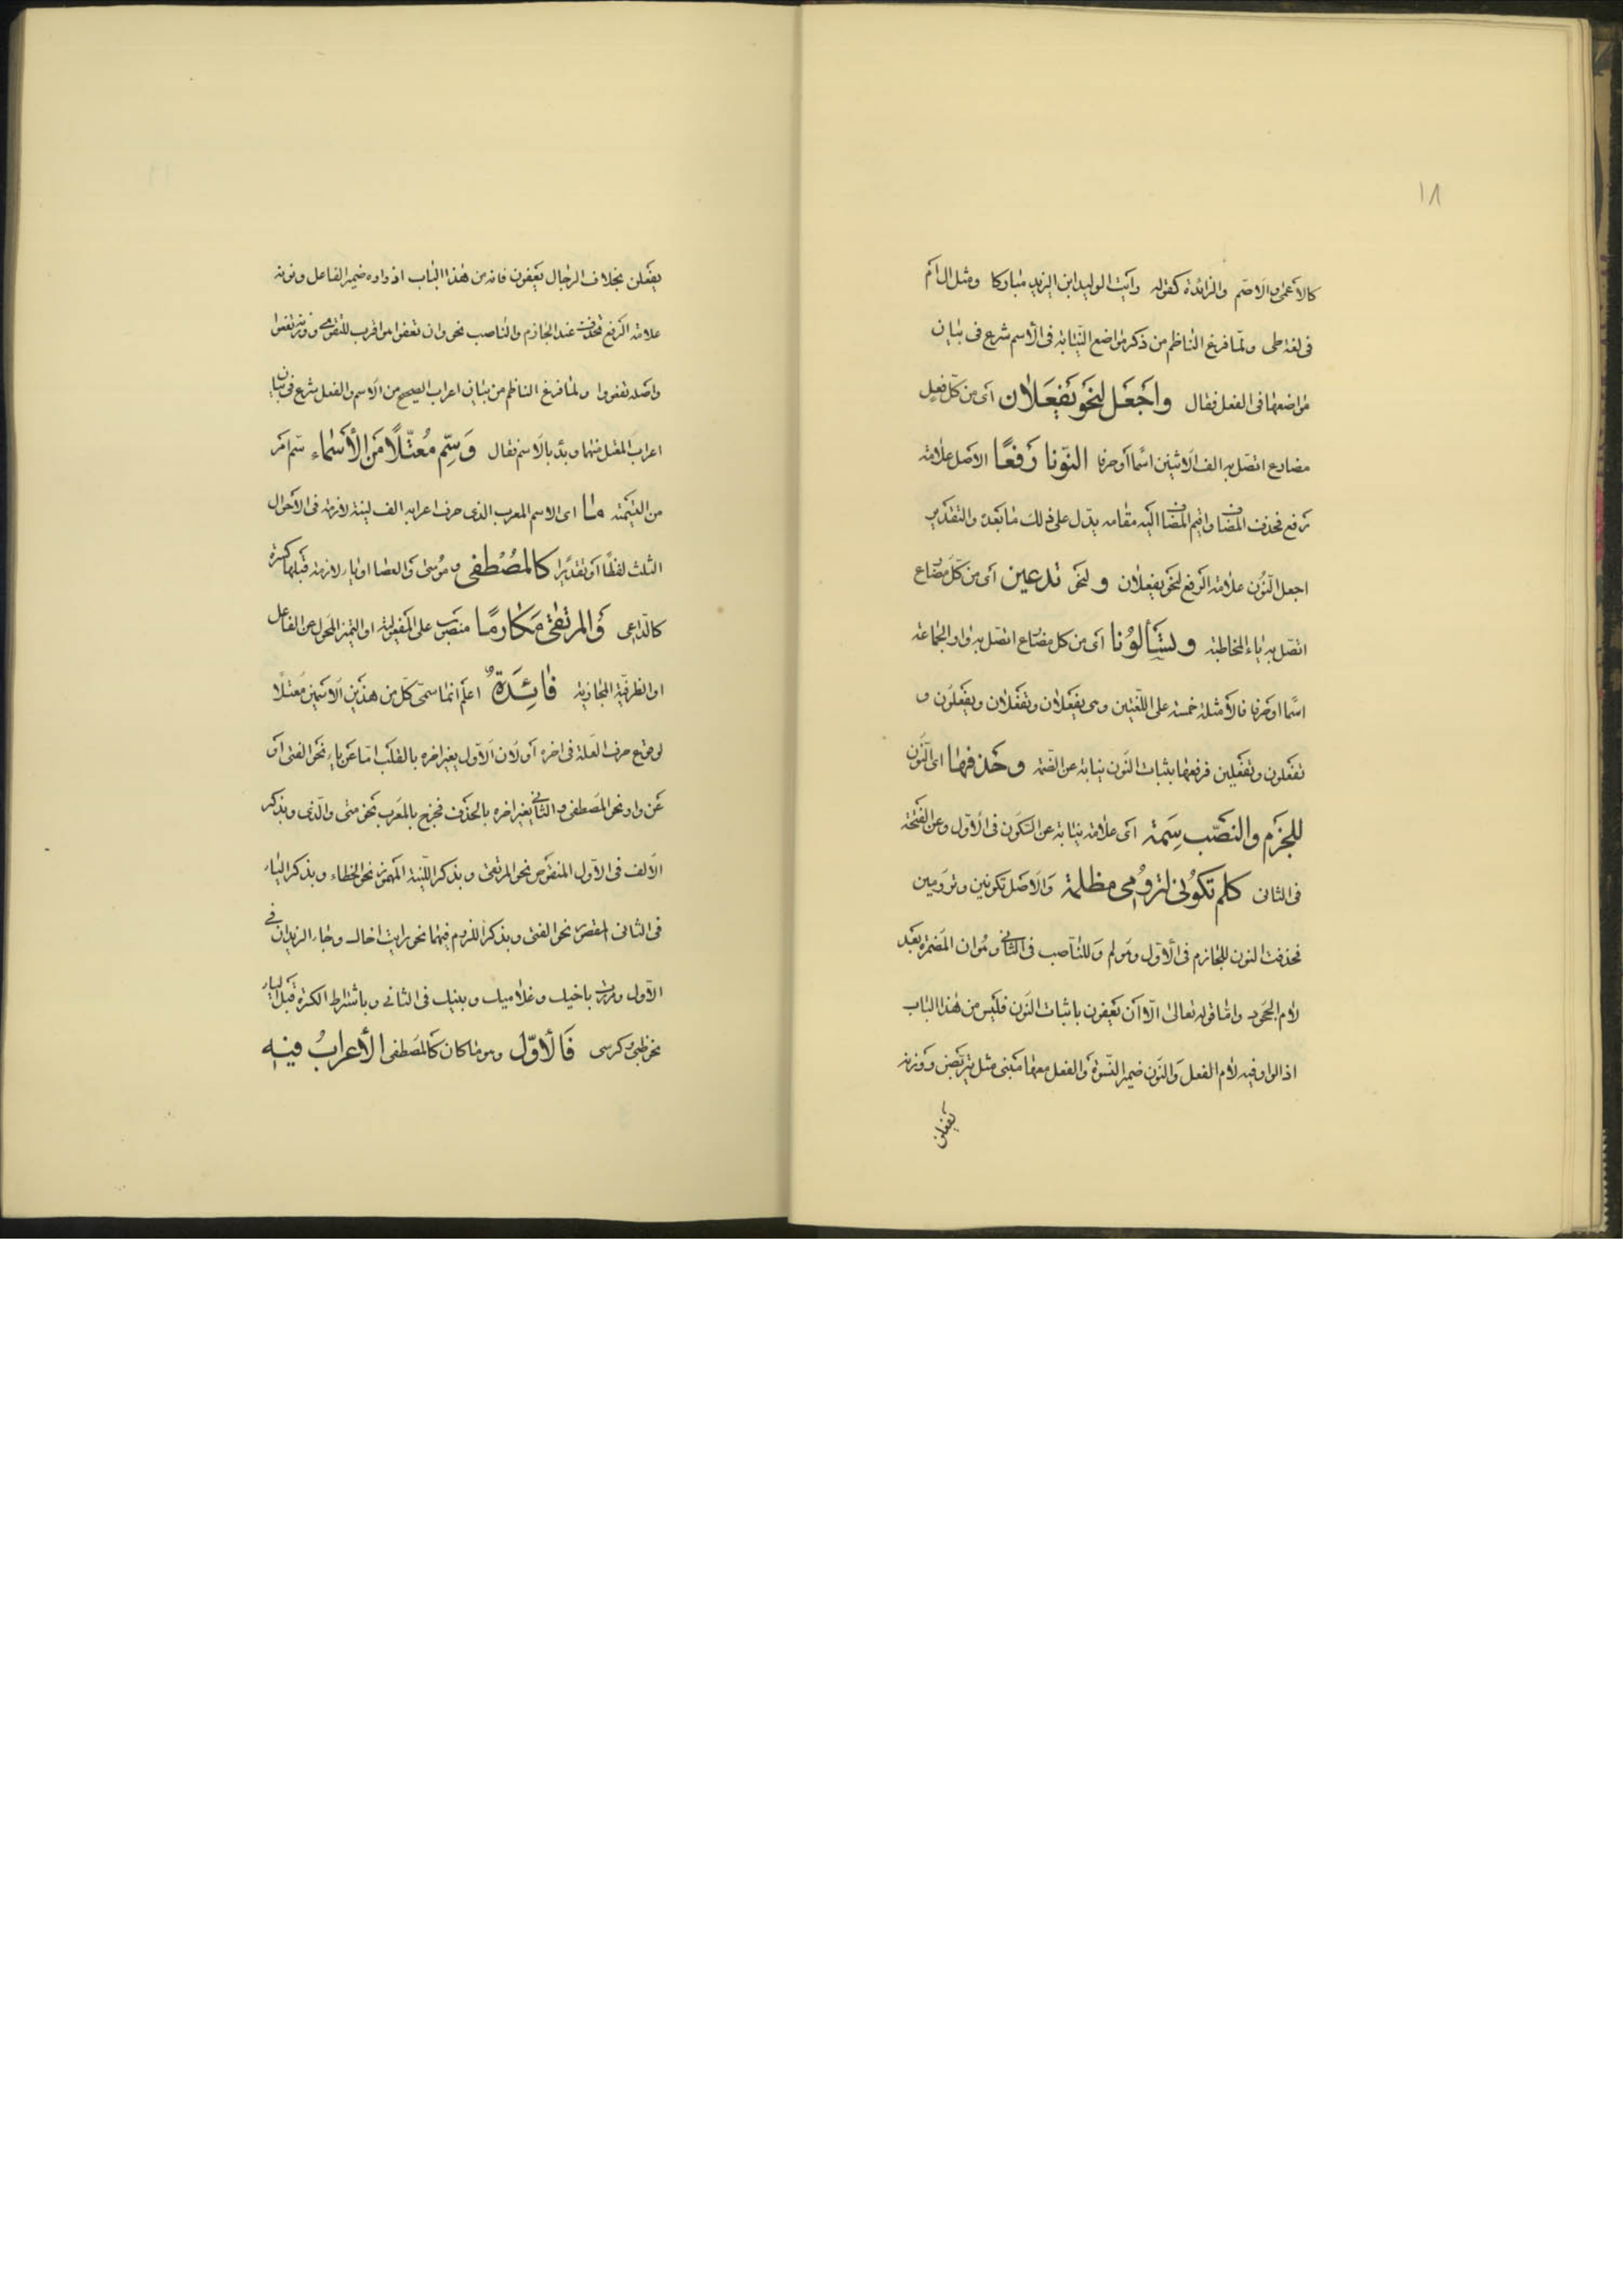 ١٨
كالاعمى والاصم والزائدة كقوله رايت الوليد ابن اليزيد مباركا ومثل ال ام
فى لغة طى ولما فرغ الناظم من ذكر مواضع النيابة فى الاسم شرع فى بيان
مواضعها فى الفعل فقال واجعل لنحو يفعلان اى من كل فعل
مضارع اتصل به الف الاثنين اسما او حرفا النونا رفعا الاصل علامة
رفع فحذف المضاف واقيم المضاف اليه مقامه يدل على ذلك ما بعده والتقدير
اجعل النون علامة الرفع لنحو يفعلان ولنحو تدعين اى من كل مضارع
اتصل به ياء المخاطبة ويسألونا اى من كل مضارع اتصل به واو الجماعة
اسما او حرفا فالامثلة خمسة على اللغتين وهى يفعلان وتفعلان ويفعلون و
تفعلون وتفعلين فرفعها بثبات النون نيابة عن الضمة وحذفها اى النون
للجزم والنصب سمة اى علامة نيابة عن السكون فى الاول وعن الفتحة
فى الثانى كلم تكونى لترومى مظلمة والاصل تكونين وترومين
فحذفت النون للجازم فى الاول وهو لم وللناصب فى الثانى وهو ان المضمرة بعد
لام الجحود واما قوله تعالى الا ان يعفون باثبات النون فليس من هذا الباب
اذ الواو فيه لام الفعل والنون ضمير النسوة والفعل معها مبنى مثل يتربصن ووزنه
يفعلن
يفعلن بخلاف الرجال يعفون فانه من هذا الباب اذ واوه ضمير الفاعل ونونه
علامة الرفع تحذف عند الجازم والناصب نحو وان تعفوا هو اقرب للتقوى ووزنه تفعوا
واصله تعفووا ولما فرغ الناظم من بيان اعراب الصحيح من الاسم والفعل شرع فى بيان
اعراب المعتل منهما وبدأ بالاسم فقال وسم معتلا من الأسماء سم امر
من التسمية ما اى الاسم المعرب الذى حرف اعرابه الف لينة لازمة فى الاحوال
الثلث لفظا او تقديرا كالمصطفى وموسى والعصا او ياء لازمة قبلها كسرة
كالداعى والمرتقى مكارما منصوب على المفعولية او التميز المحول عن الفاعل
او الظرفية المجازية فائدة اعلم انما سمى كل من هذين الاسمين معتلا
لوقوع حرف العلة فى اخره او لان الاول يغير اخره بالقلب اما عن ياء نحو الفتى او
عن واو نحو المصطفى والثانى يغير اخره بالحذف فخرج بالمعرب نحو متى والذى وبذكر
الالف فى الاول المنقوص نحو المرتقى وبذكر اللينة المهموز نحو الخطاء وبذكر الياء
فى الثانى المقصور نحو الفتى وبذكر اللزوم فيهما نحو رايت اخاك وجاء الزيدان فى
الاول ومررت باخيك وغلاميك وبنيك فى الثانى وباشتراط الكسرة قبل الياء
نحو ظبى وكرسى فالأول وهو ما كان كالمصطفى الأعراب فيه